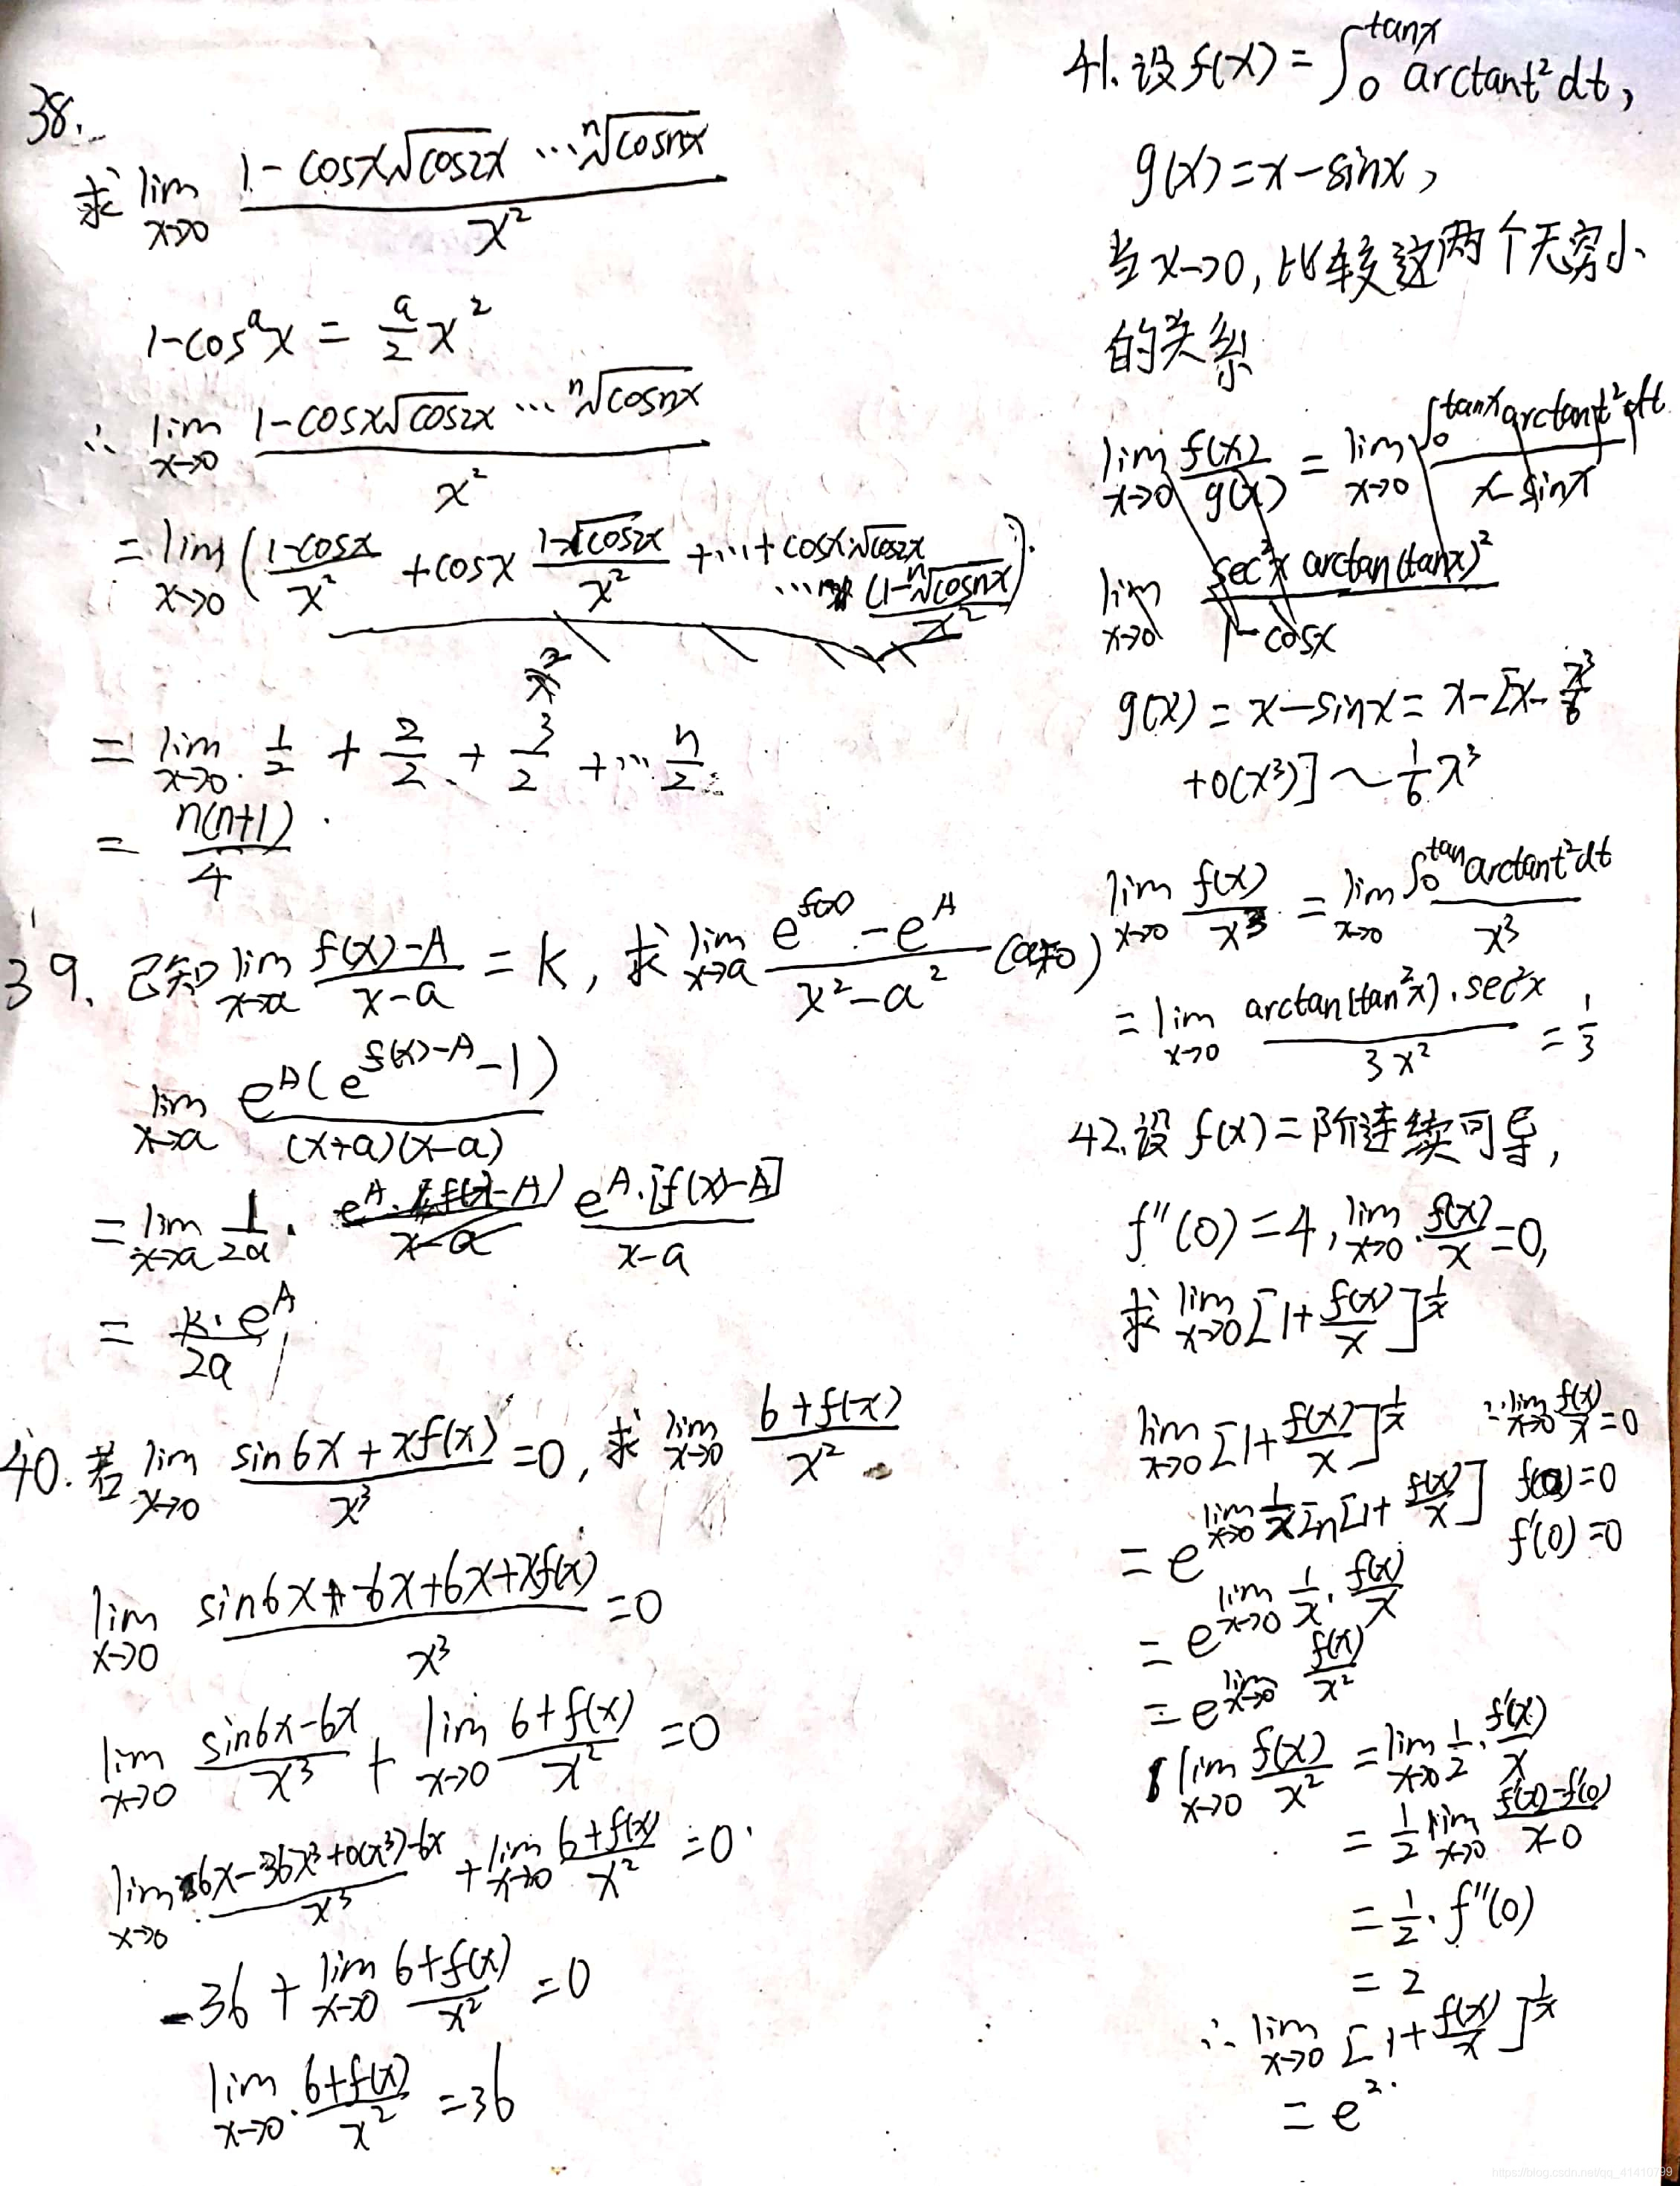 38.
求 lim x→0 (1-cosx√cos2x ⋯ ⁿ√cosnx)/x²
1-cosᵃx = a/2 x²
∴ lim x→0 (1-cosx√cos2x ⋯ ⁿ√cosnx)/x²
= lim x→0 ( (1-cosx)/x² + cosx (1-√cos2x)/x² + ⋯ + cosx√cos2x ⋯ (1-ⁿ√cosnx)/x² )
= lim x→0 1/2 + 2/2 + 3/2 + ⋯ n/2
= n(n+1)/4
39. 已知 lim x→a (f(x)-A)/(x-a) = k, 求 lim x→a (e^f(x) - e^A)/(x²-a²) (a≠0)
lim x→a e^A(e^(f(x)-A) -1)/((x+a)(x-a))
= lim x→a 1/2a · e^A·[f(x)-A]/(x-a)
= k·e^A/2a
40. 若 lim x→0 (sin6x+xf(x))/x³ =0, 求 lim x→0 (6+f(x))/x²
lim x→0 (sin6x-6x+6x+xf(x))/x³ =0
lim x→0 (sin6x-6x)/x³ + lim x→0 (6+f(x))/x² =0
lim x→0 (6x-36x³+o(x³)-6x)/x³ + lim x→0 (6+f(x))/x² =0
-36 + lim x→0 (6+f(x))/x² =0
lim x→0 (6+f(x))/x² =36
41. 设 f(x) = ∫₀^tanx arctant² dt,
g(x) = x-sinx,
当x→0, 比较这两个无穷小
的关系
lim x→0 f(x)/g(x) = lim x→0 ∫₀^tanx arctant² dt/(x-sinx)
lim x→0 sec²x arctan(tanx)²/(1-cosx)
g(x) = x-sinx = x-[x-x³/6
+o(x³)] ~ 1/6 x³
lim x→0 f(x)/x³ = lim x→0 ∫₀^tan arctant²dt/x³
= lim x→0 arctan(tan²x)·sec²x/3x² = 1/3
42. 设 f(x) 二阶连续可导,
f''(0) = 4, lim x→0 f(x)/x =0,
求 lim x→0 [1+f(x)/x]^(1/x)
lim x→0 [1+f(x)/x]^(1/x) ∵ lim x→0 f(x)/x =0
= e^(lim x→0 1/x ln[1+f(x)/x]) f(0)=0
f'(0)=0
= e^(lim x→0 1/x · f(x)/x)
= e^(lim x→0 f(x)/x²)
lim x→0 f(x)/x² = lim x→0 1/2 · f'(x)/x
= 1/2 lim x→0 (f'(x)-f'(0))/(x-0)
= 1/2 · f''(0)
= 2
∴ lim x→0 [1+f(x)/x]^(1/x)
= e².
https://blog.csdn.net/qq_41410799